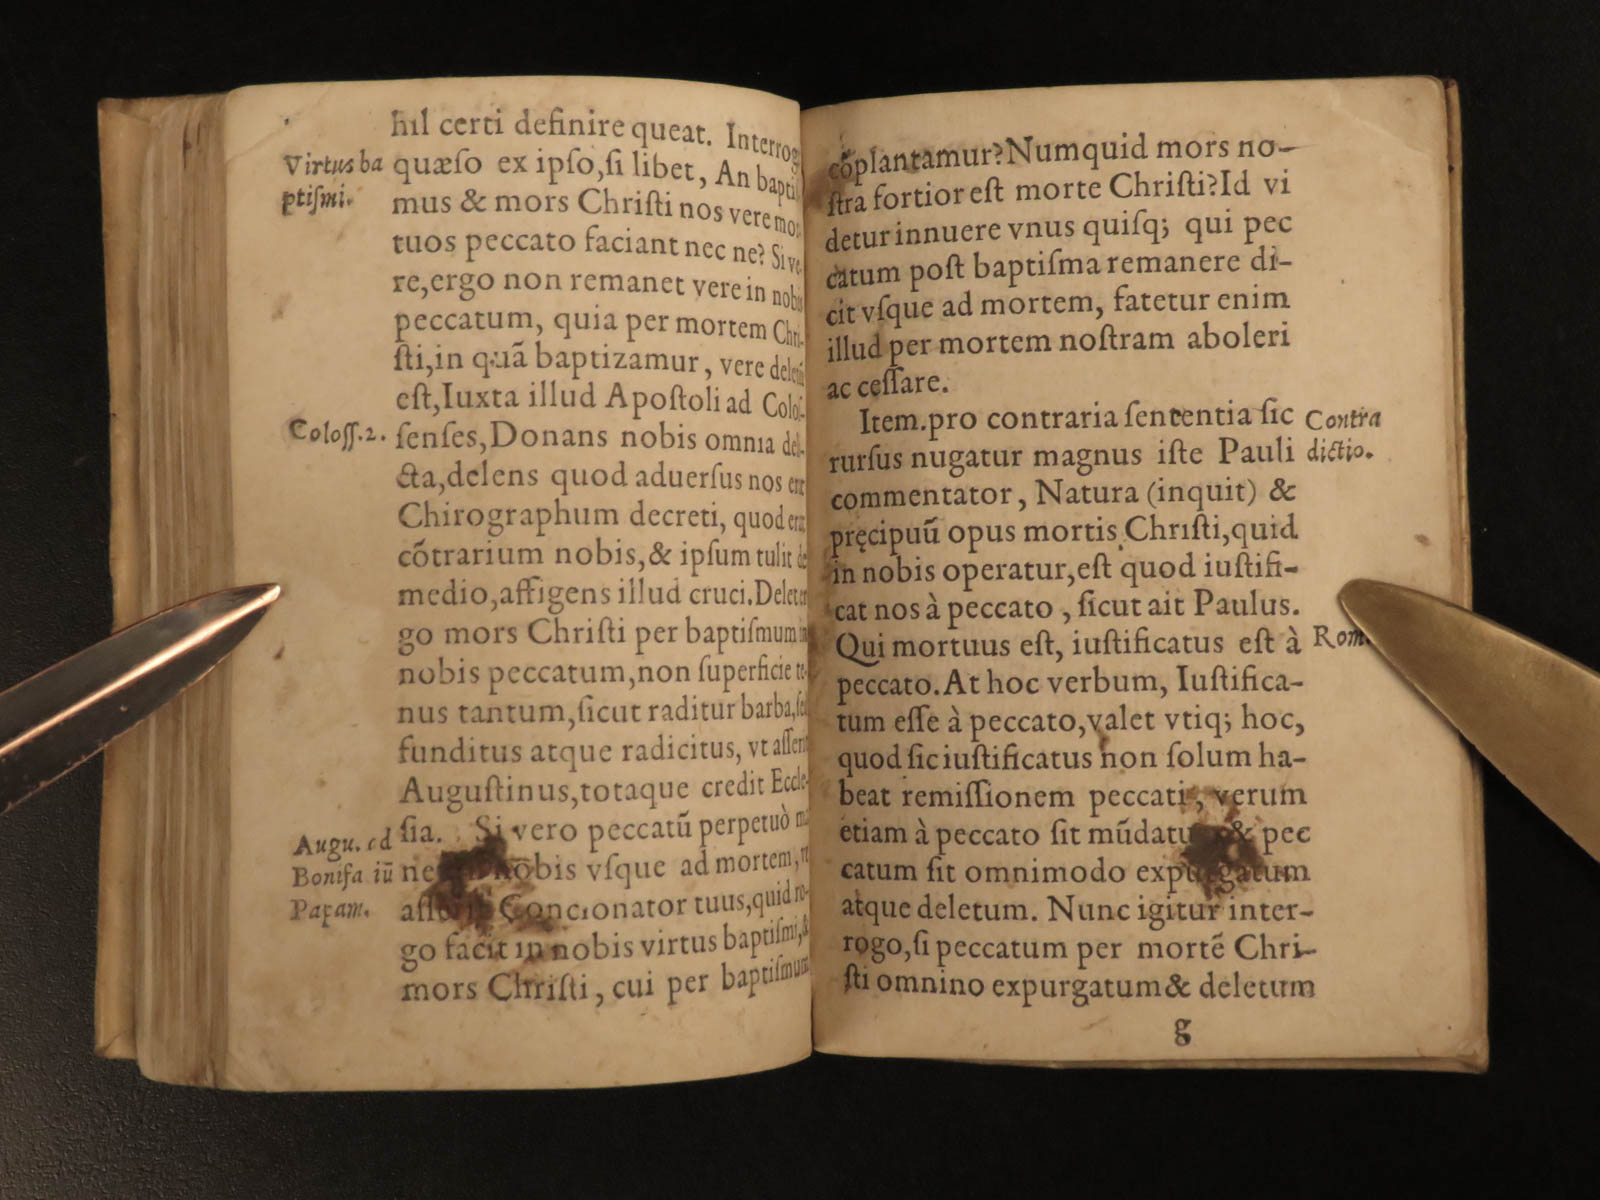 hil certi definire queat. Interrog
Virtus ba
ptiſmi.
quæſo ex ipſo, ſi libet, An baptiſ
mus & mors Chriſti nos vere mor
tuos peccato faciant nec ne? Si ve-
re, ergo non remanet vere in nobis
peccatum, quia per mortem Chri-
ſti, in quā baptizamur, vere deletū
eſt, Iuxta illud Apoſtoli ad Coloſ-
Coloſſ. 2.
ſenſes, Donans nobis omnia deli-
cta, delens quod aduerſus nos erat
Chirographum decreti, quod erat
cōtrarium nobis, & ipſum tulit de
medio, affigens illud cruci. Delet er
go mors Chriſti per baptiſmum in
nobis peccatum, non ſuperficie te-
nus tantum, ſicut raditur barba, ſed
funditus atque radicitus, vt aſſerit
Auguſtinus, totaque credit Eccle-
Augu. ad
Bonifa iū
Papam.
ſia. Si vero peccatū perpetuò ma
nobis vſque ad mortem, vt
Concionator tuus, quid ro-
go facit in nobis virtus baptiſmi, &
mors Chriſti, cui per baptiſmum
cōplantamur? Numquid mors no-
ſtra fortior eſt morte Chriſti? Id vi
detur innuere vnus quiſq; qui pec
catum poſt baptiſma remanere di-
cit vſque ad mortem, fatetur enim
illud per mortem noſtram aboleri
ac ceſſare.
Item. pro contraria ſententia ſic
Contra
dictio.
rurſus nugatur magnus iſte Pauli
commentator, Natura (inquit) &
pręcipuū opus mortis Chriſti, quid
in nobis operatur, eſt quod iuſtifi-
cat nos à peccato, ſicut ait Paulus.
Qui mortuus eſt, iuſtificatus eſt à
Rom.
peccato. At hoc verbum, Iuſtifica-
tum eſſe à peccato, valet vtiq; hoc,
quod ſic iuſtificatus non ſolum ha-
beat remiſſionem peccati, verum
etiam à peccato ſit mūdatus & pec
catum ſit omnimodo expurgatum
atque deletum. Nunc igitur inter-
rogo, ſi peccatum per mortē Chri-
ſti omnino expurgatum & deletum
g